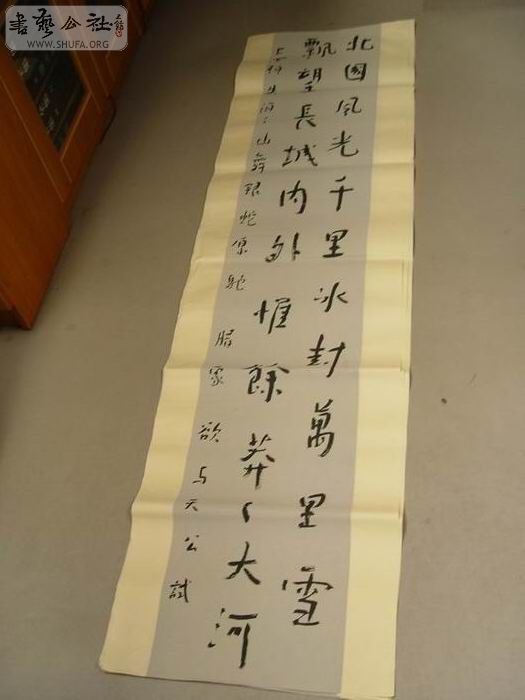 書藝公社
WWW.SHUFA.ORG
北國風光千里冰封萬里雪
飄望長城内外惟餘莽々大河
上下頓失滔々山舞銀蛇原馳腊象欲与天公試